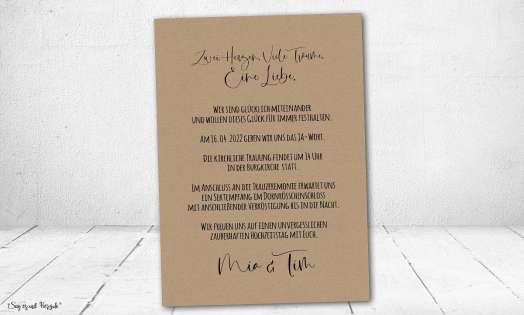 Zwei Herzen, Viele Träume,
Eine Liebe.
Wir sind glücklich miteinander
und wollen dieses Glück für immer festhalten.
Am 16.04.2022 geben wir uns das Ja-Wort.
Die kirchliche Trauung findet um 14 Uhr
in der Burgkirche statt.
Im Anschluss an die Trauzeremonie erwartet uns
ein Sektempfang im Dornröschenschloss
mit anschließender Verköstigung bis in die Nacht.
Wir freuen uns auf einen unvergesslichen
zauberhaften Hochzeitstag mit Euch.
Mia & Tim
"Sag es mit Herzich"